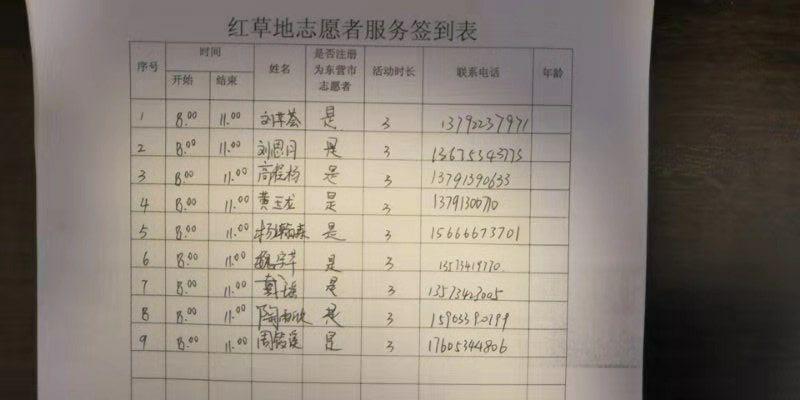 红草地志愿者服务签到表
序号 时间 开始 结束 姓名 是否注册为东营市志愿者 活动时长 联系电话 年龄
1 8.00 11.00 是 3 13792237971
2 8.00 11.00 刘思月 是 3 13675343773
3 8.00 11.00 是 3 13791390633
4 8.00 11.00 黄玉龙 是 3 13791300710
5 8.00 11.00 是 3 15666673701
6 8.00 11.00 是 3
7 8.00 11.00 是 3 13573423005
8 8.00 11.00 是 3
9 8.00 11.00 是 3 17605344806